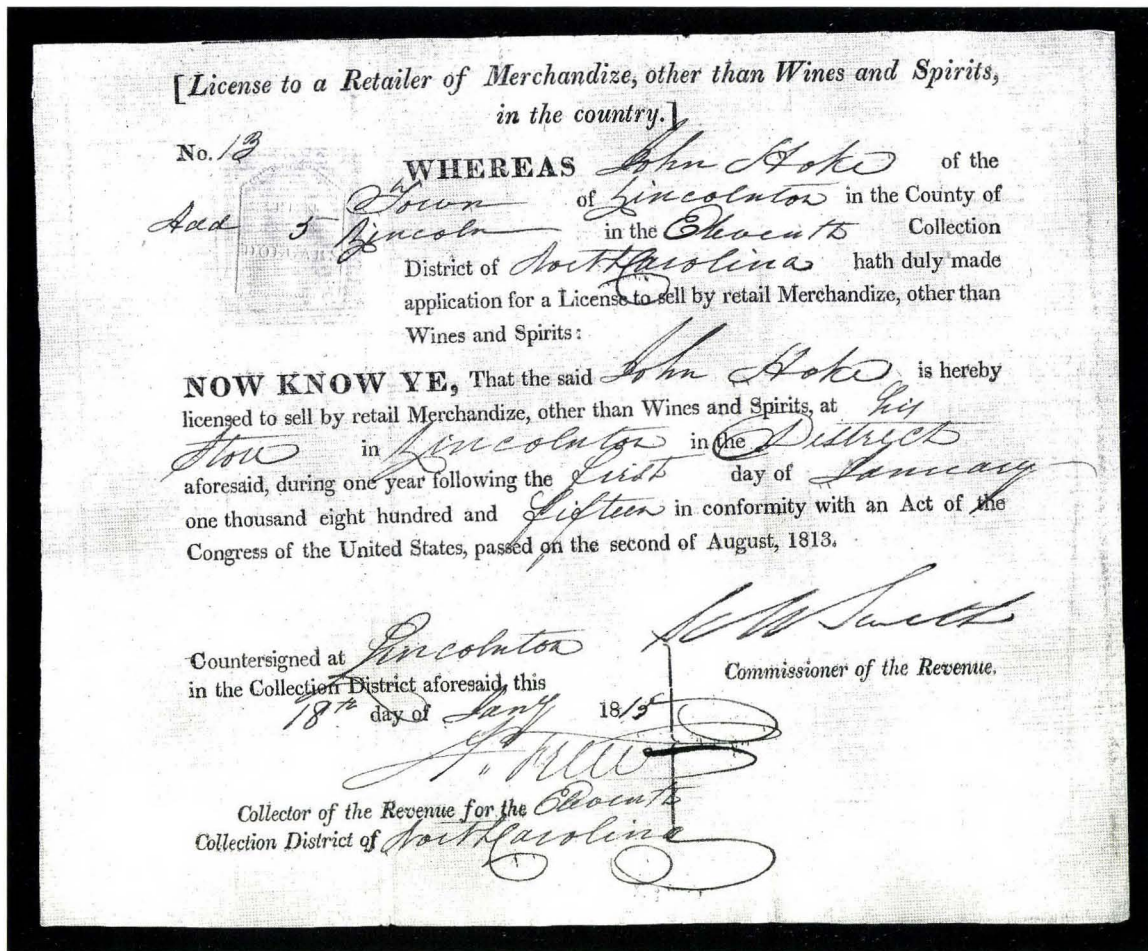 [License to a Retailer of Merchandize, other than Wines and Spirits,
in the country.]
No. 13
WHEREAS John Hoke of the
Town of Lincolnton in the County of
Add 5 Lincoln in the Eleventh Collection
District of North Carolina hath duly made
application for a License to sell by retail Merchandize, other than
Wines and Spirits:
NOW KNOW YE, That the said John Hoke is hereby
licensed to sell by retail Merchandize, other than Wines and Spirits, at his
Store in Lincolnton in the District
aforesaid, during one year following the first day of January
one thousand eight hundred and fifteen in conformity with an Act of the
Congress of the United States, passed on the second of August, 1813.
Smith
Countersigned at Lincolnton
Commissioner of the Revenue.
in the Collection District aforesaid, this
18th day of Jany 1815
Collector of the Revenue for the Eleventh
Collection District of North Carolina